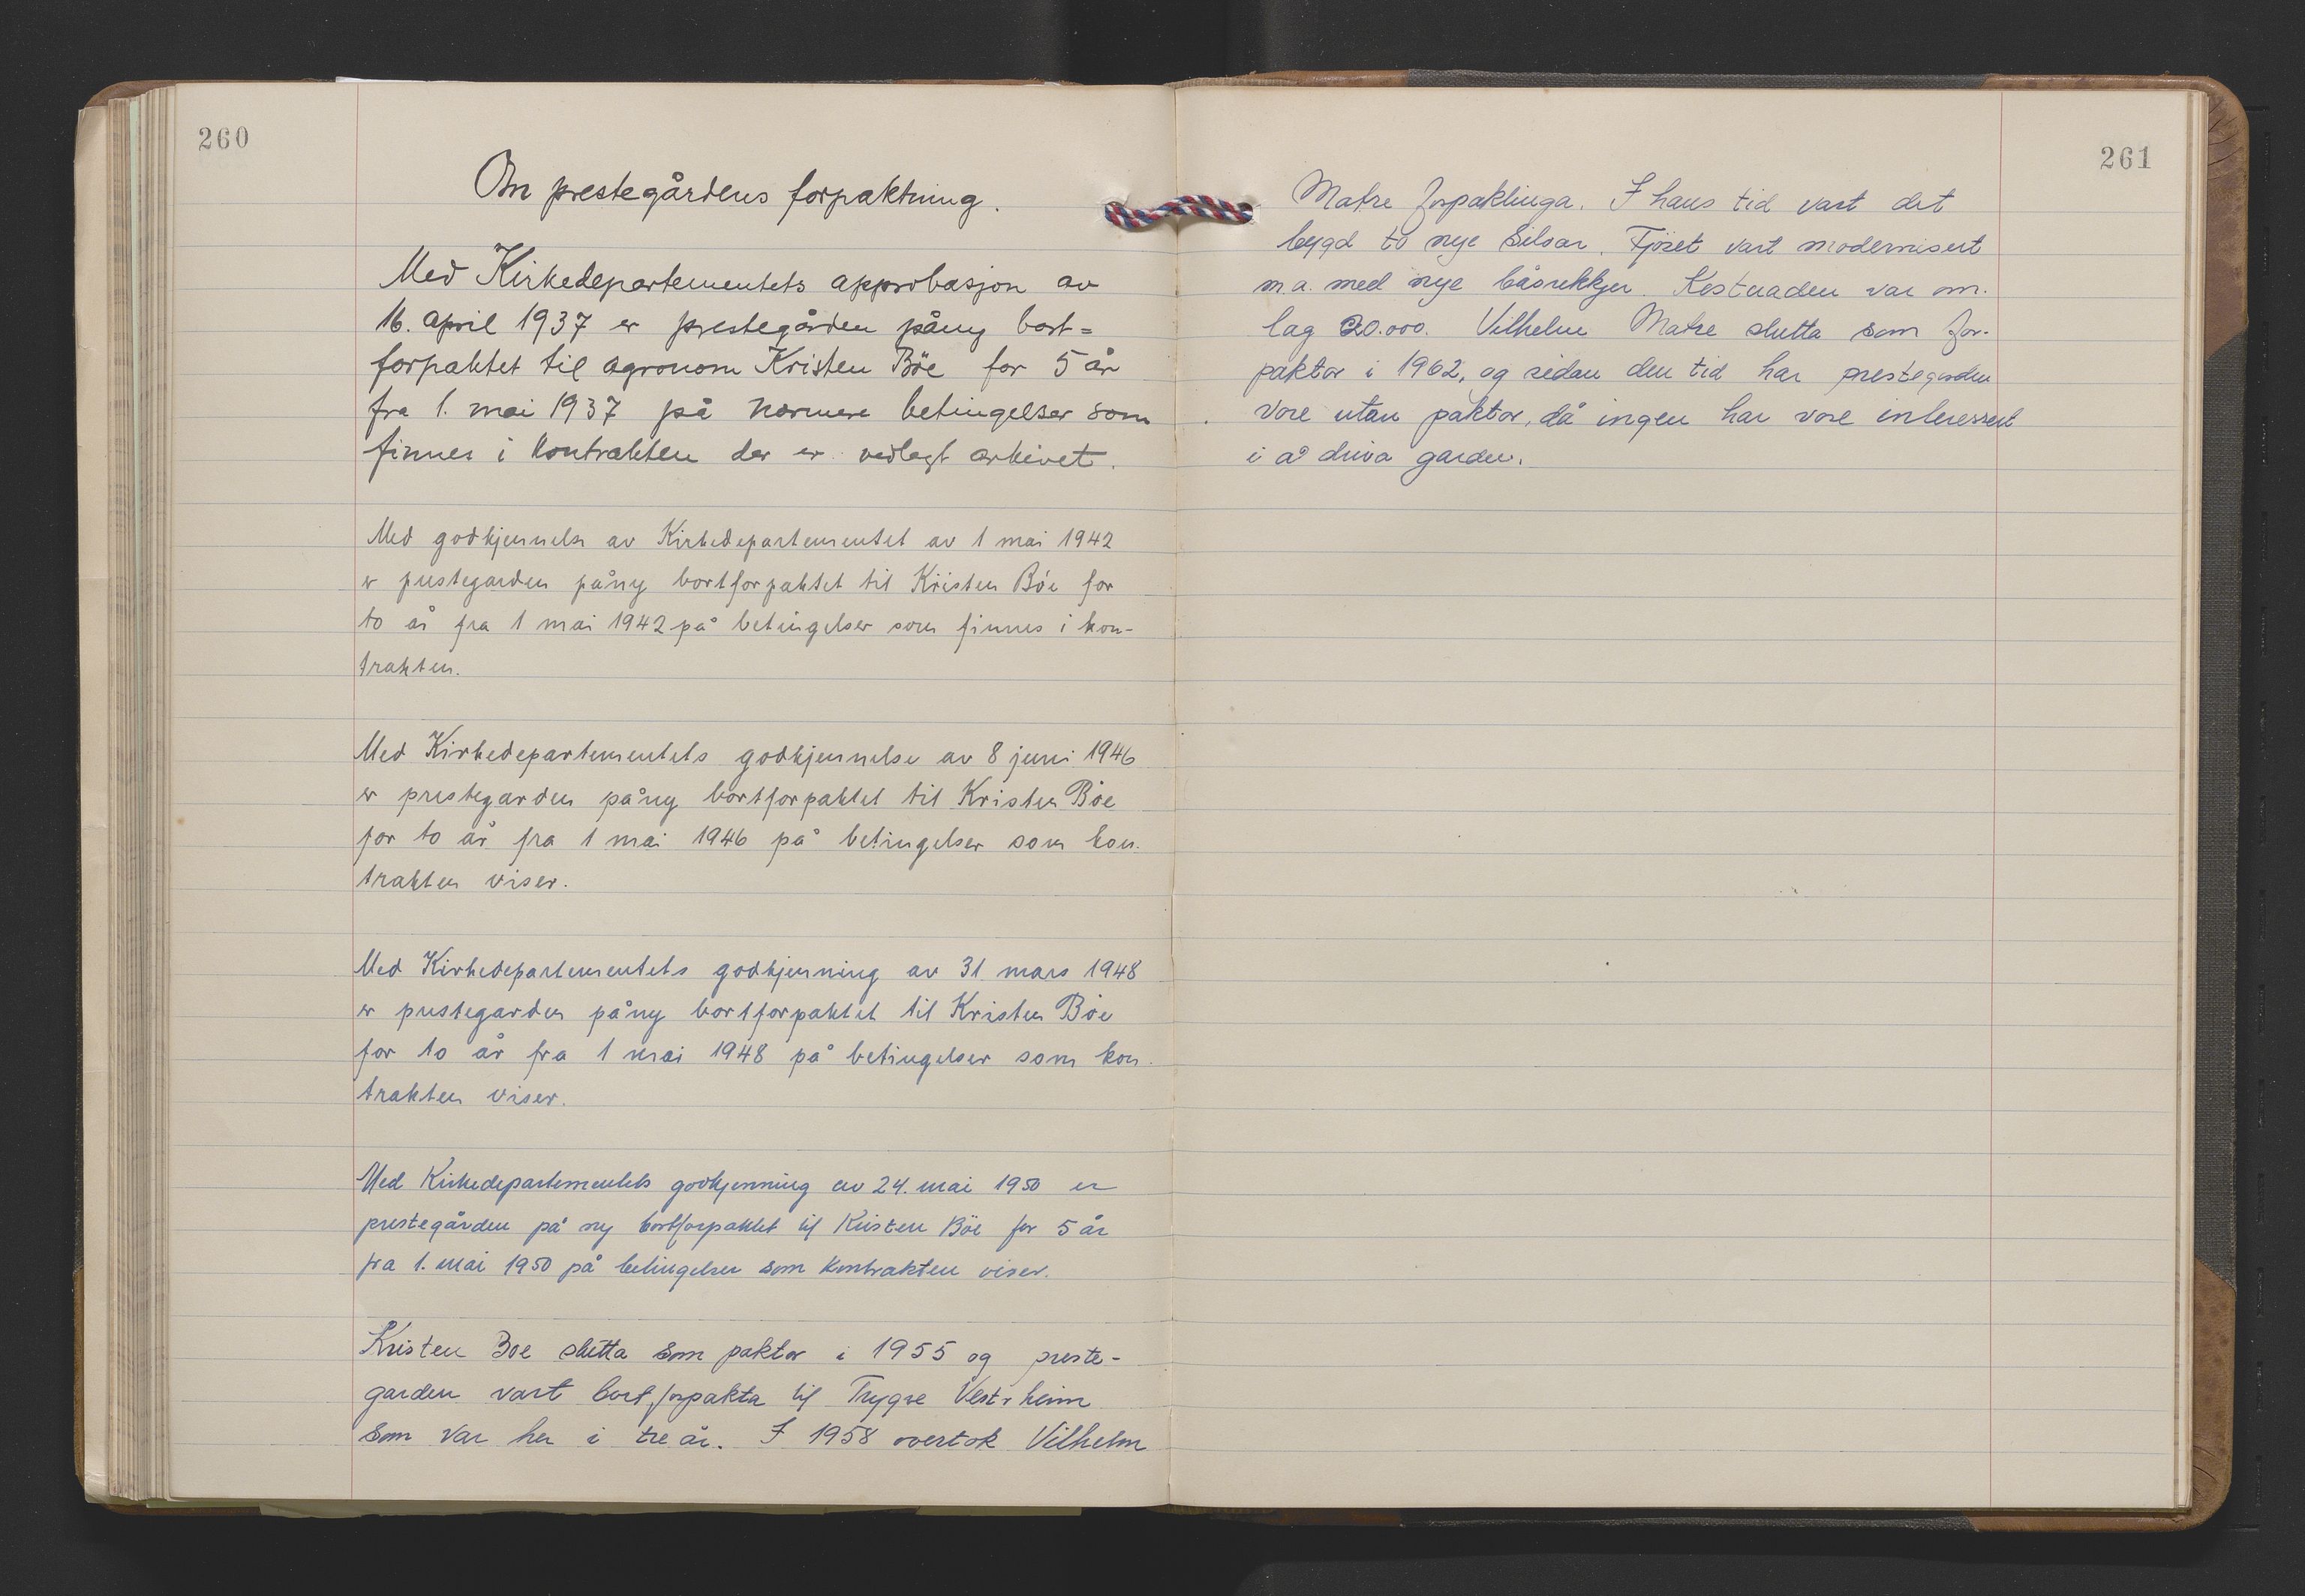 260
Om prestegårdens forpaktning.
Med Kirkedepartementets approbasjon av
16. april 1937 er prestegården påny bort=
forpaktet til agronom Kristen Böe for 5 år
fra 1. mai 1937 på nærmere betingelser som
finnes i kontrakten der er vedlagt arkivet.
Med godkjennelse av Kirkedepartementet av 1 mai 1942
er prestegarden påny bortforpaktet til Kristen Böe for
to år fra 1 mai 1942 på betingelser som finnes i kon-
trakten.
Med Kirkedepartementets godkjennelse av 8 juni 1946
er prestegarden påny bortforpaktet til Kristen Böe
for to år fra 1 mai 1946 på betingelser som kon-
trakten viser.
Med Kirkedepartementets godkjenning av 31 mars 1948
er prestegarden påny bortforpaktet til Kristen Böe
for to år fra 1 mai 1948 på betingelser som kon-
trakten viser.
Med Kirkedepartementets godkjenning av 24. mai 1950 er
prestegården på ny bortforpaktet til Kristen Böe for 5 år
fra 1. mai 1950 på betingelser som kontrakten viser.
Kristen Boe slutta som paktor i 1955 og preste-
garden vart bortforpakta til Trygve Vestrheim
som var her i tre år. I 1958 overtok Vilhelm
261
Matre forpaktinga. I hans tid vart det
bygd to nye siloar. Fjöset vart modernisert
m.a. med nye båsrekkjer. Kostnaden var om-
lag 20.000. Vilhelm Matre slutta som for-
paktor i 1962, og sidan den tid har prestegarden
vore utan paktor, då ingen har vore interessert
i å driva garden.